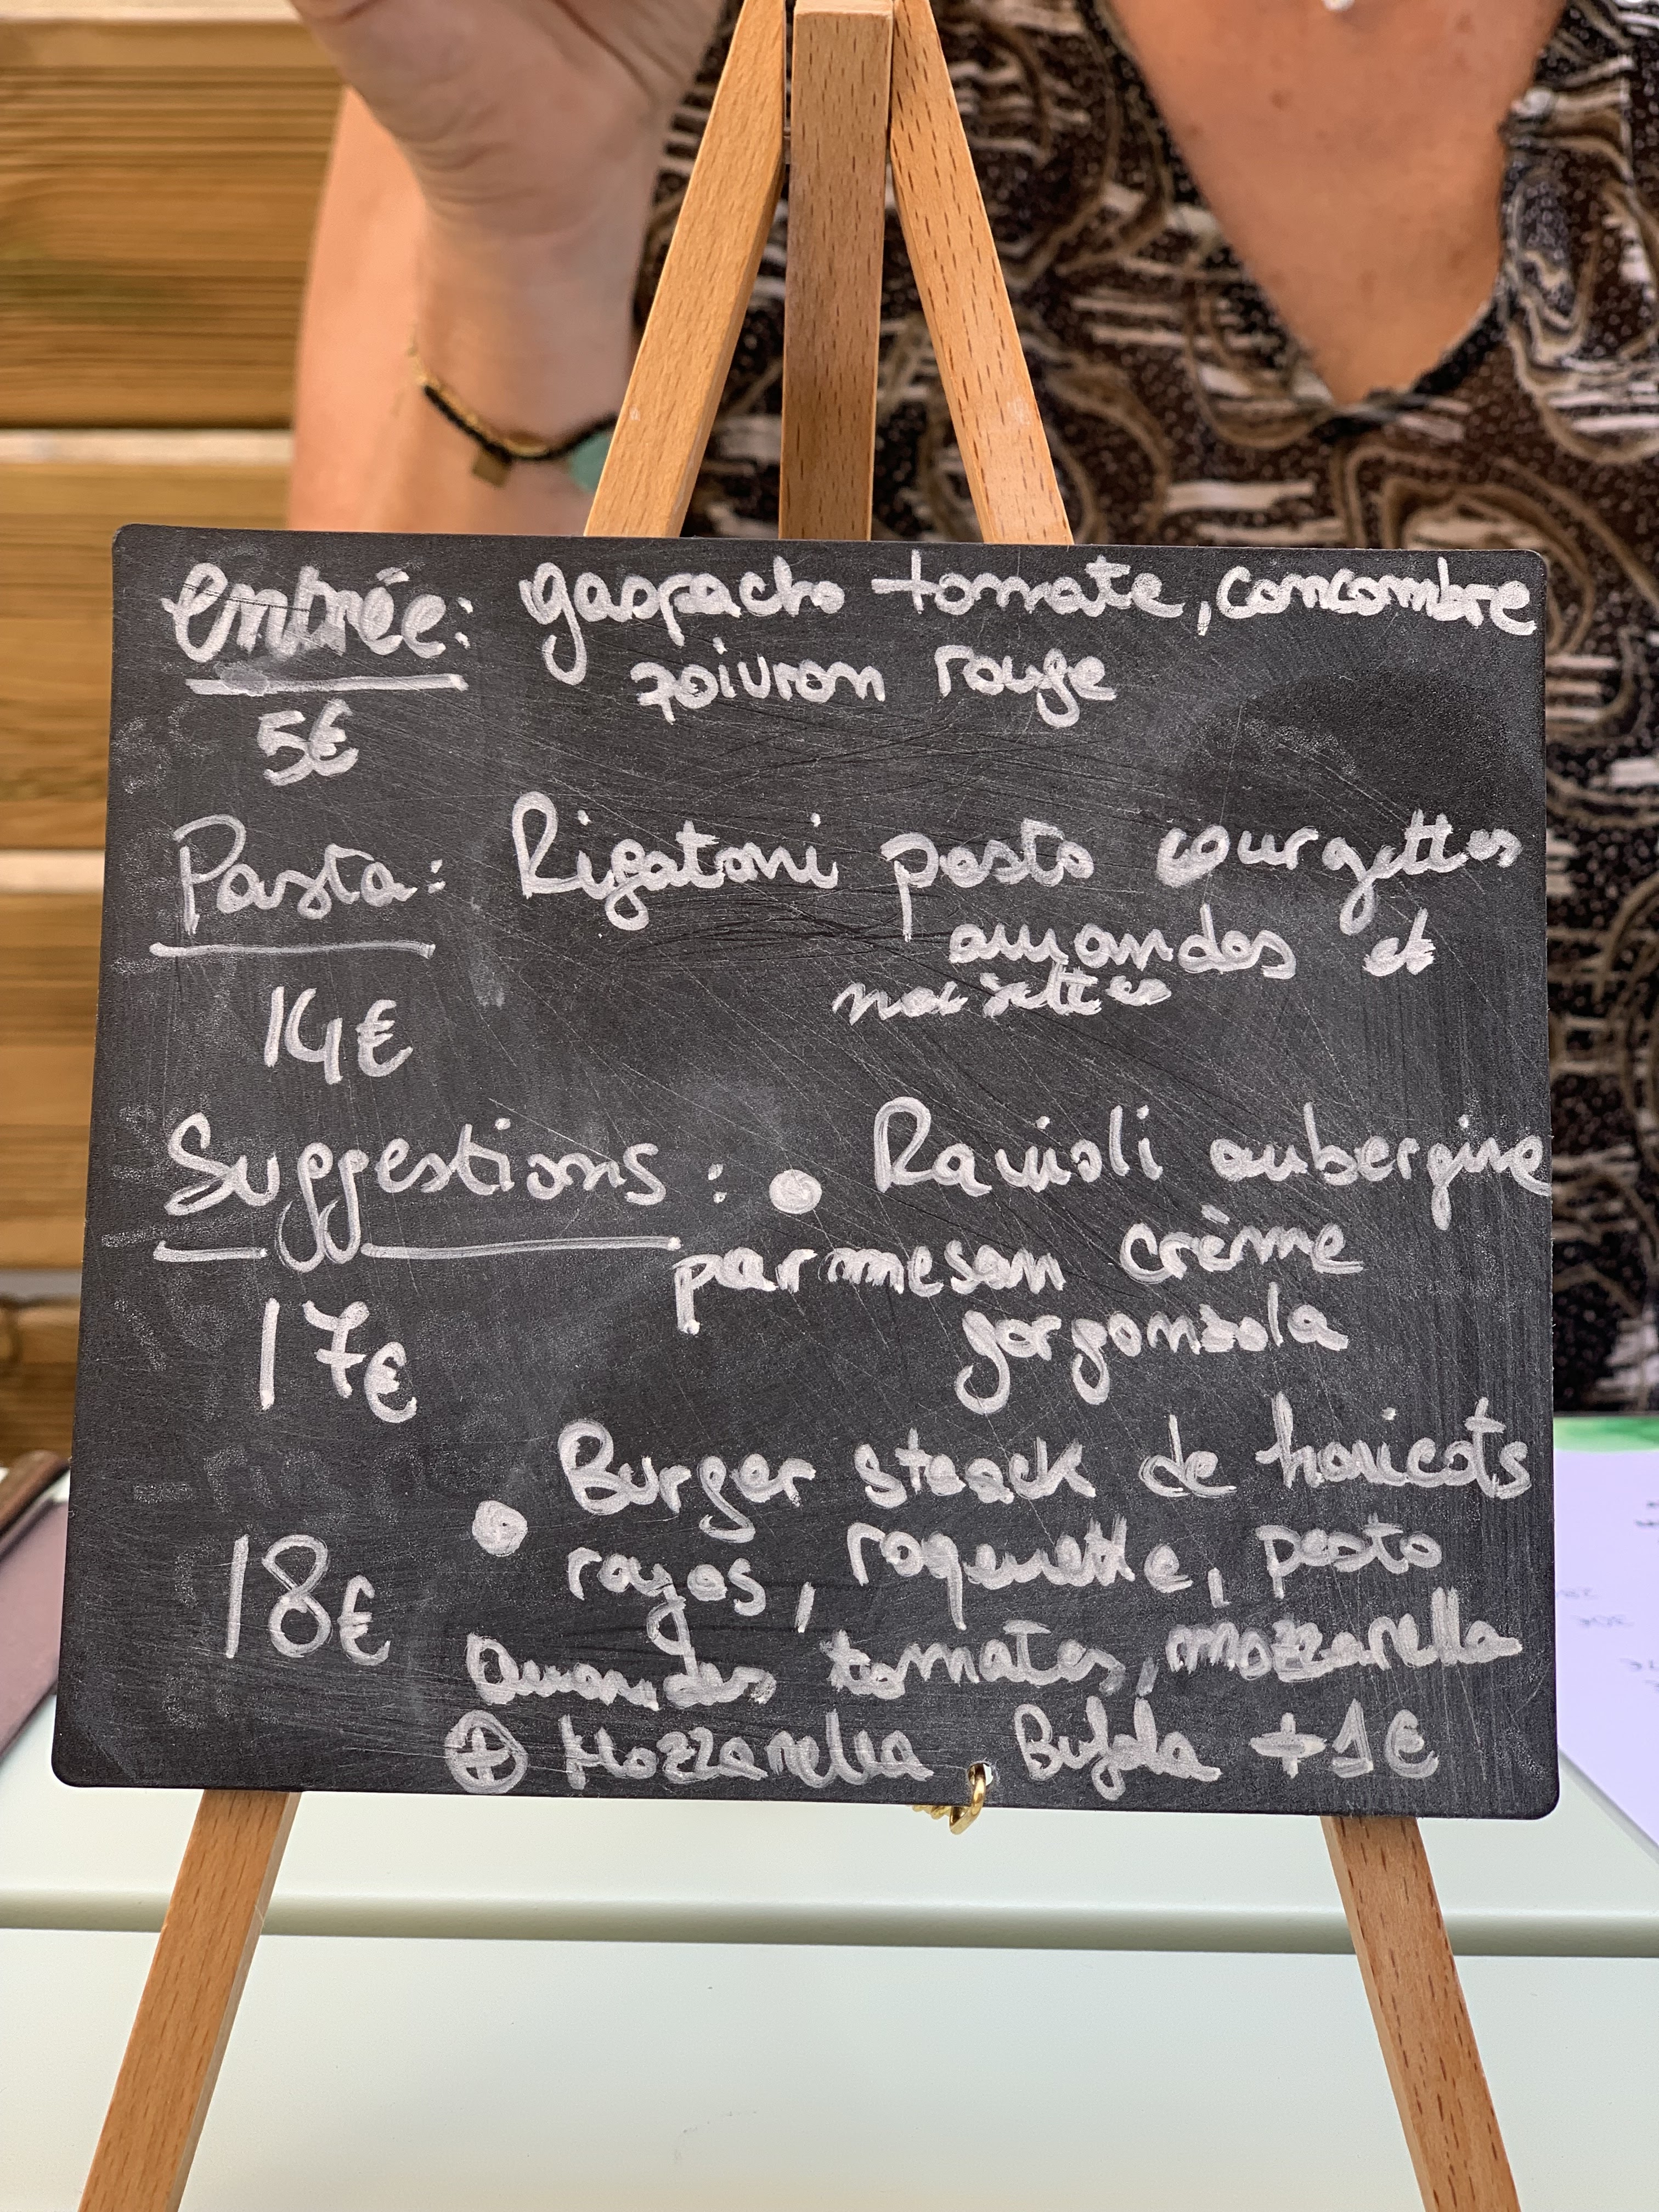 entrée: gaspacho tomate, concombre
poivron rouge
5€
Pasta: Rigatoni pesto courgettes
amandes et
noisettes
14€
Suggestions: • Ravioli aubergine
parmesan crème
gorgonzola
17€
• Burger steack de haricots
rouges, roquette, pesto
18€
Amandes tomates, mozzarella
⊕ Mozzarella Bufala +1€